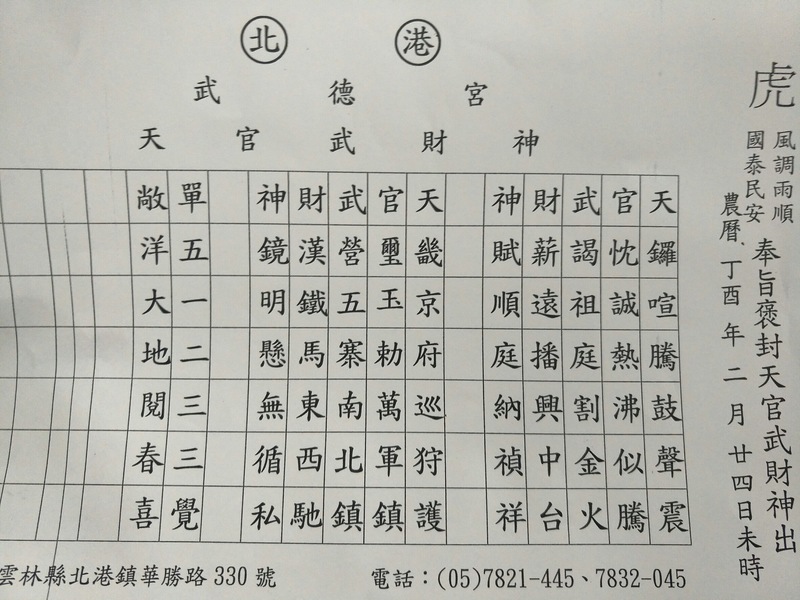 北港
武德宮
天官武財神
虎
風調雨順
國泰民安
奉旨褒封天官武財神出
農曆、丁酉年二月廿四日未時
天鑼喧騰鼓聲震
官忱誠熱沸似騰
武謁祖庭割金火
財薪遠播興中台
神賦順庭納禎祥
天畿京府巡狩護
官璽玉勅萬軍鎮
武營五寨南北鎮
財漢鐵馬東西馳
神鏡明懸無循私
單五一二三三覺
敞洋大地閱春喜
雲林縣北港鎮華勝路330號
電話：(05)7821-445、7832-045